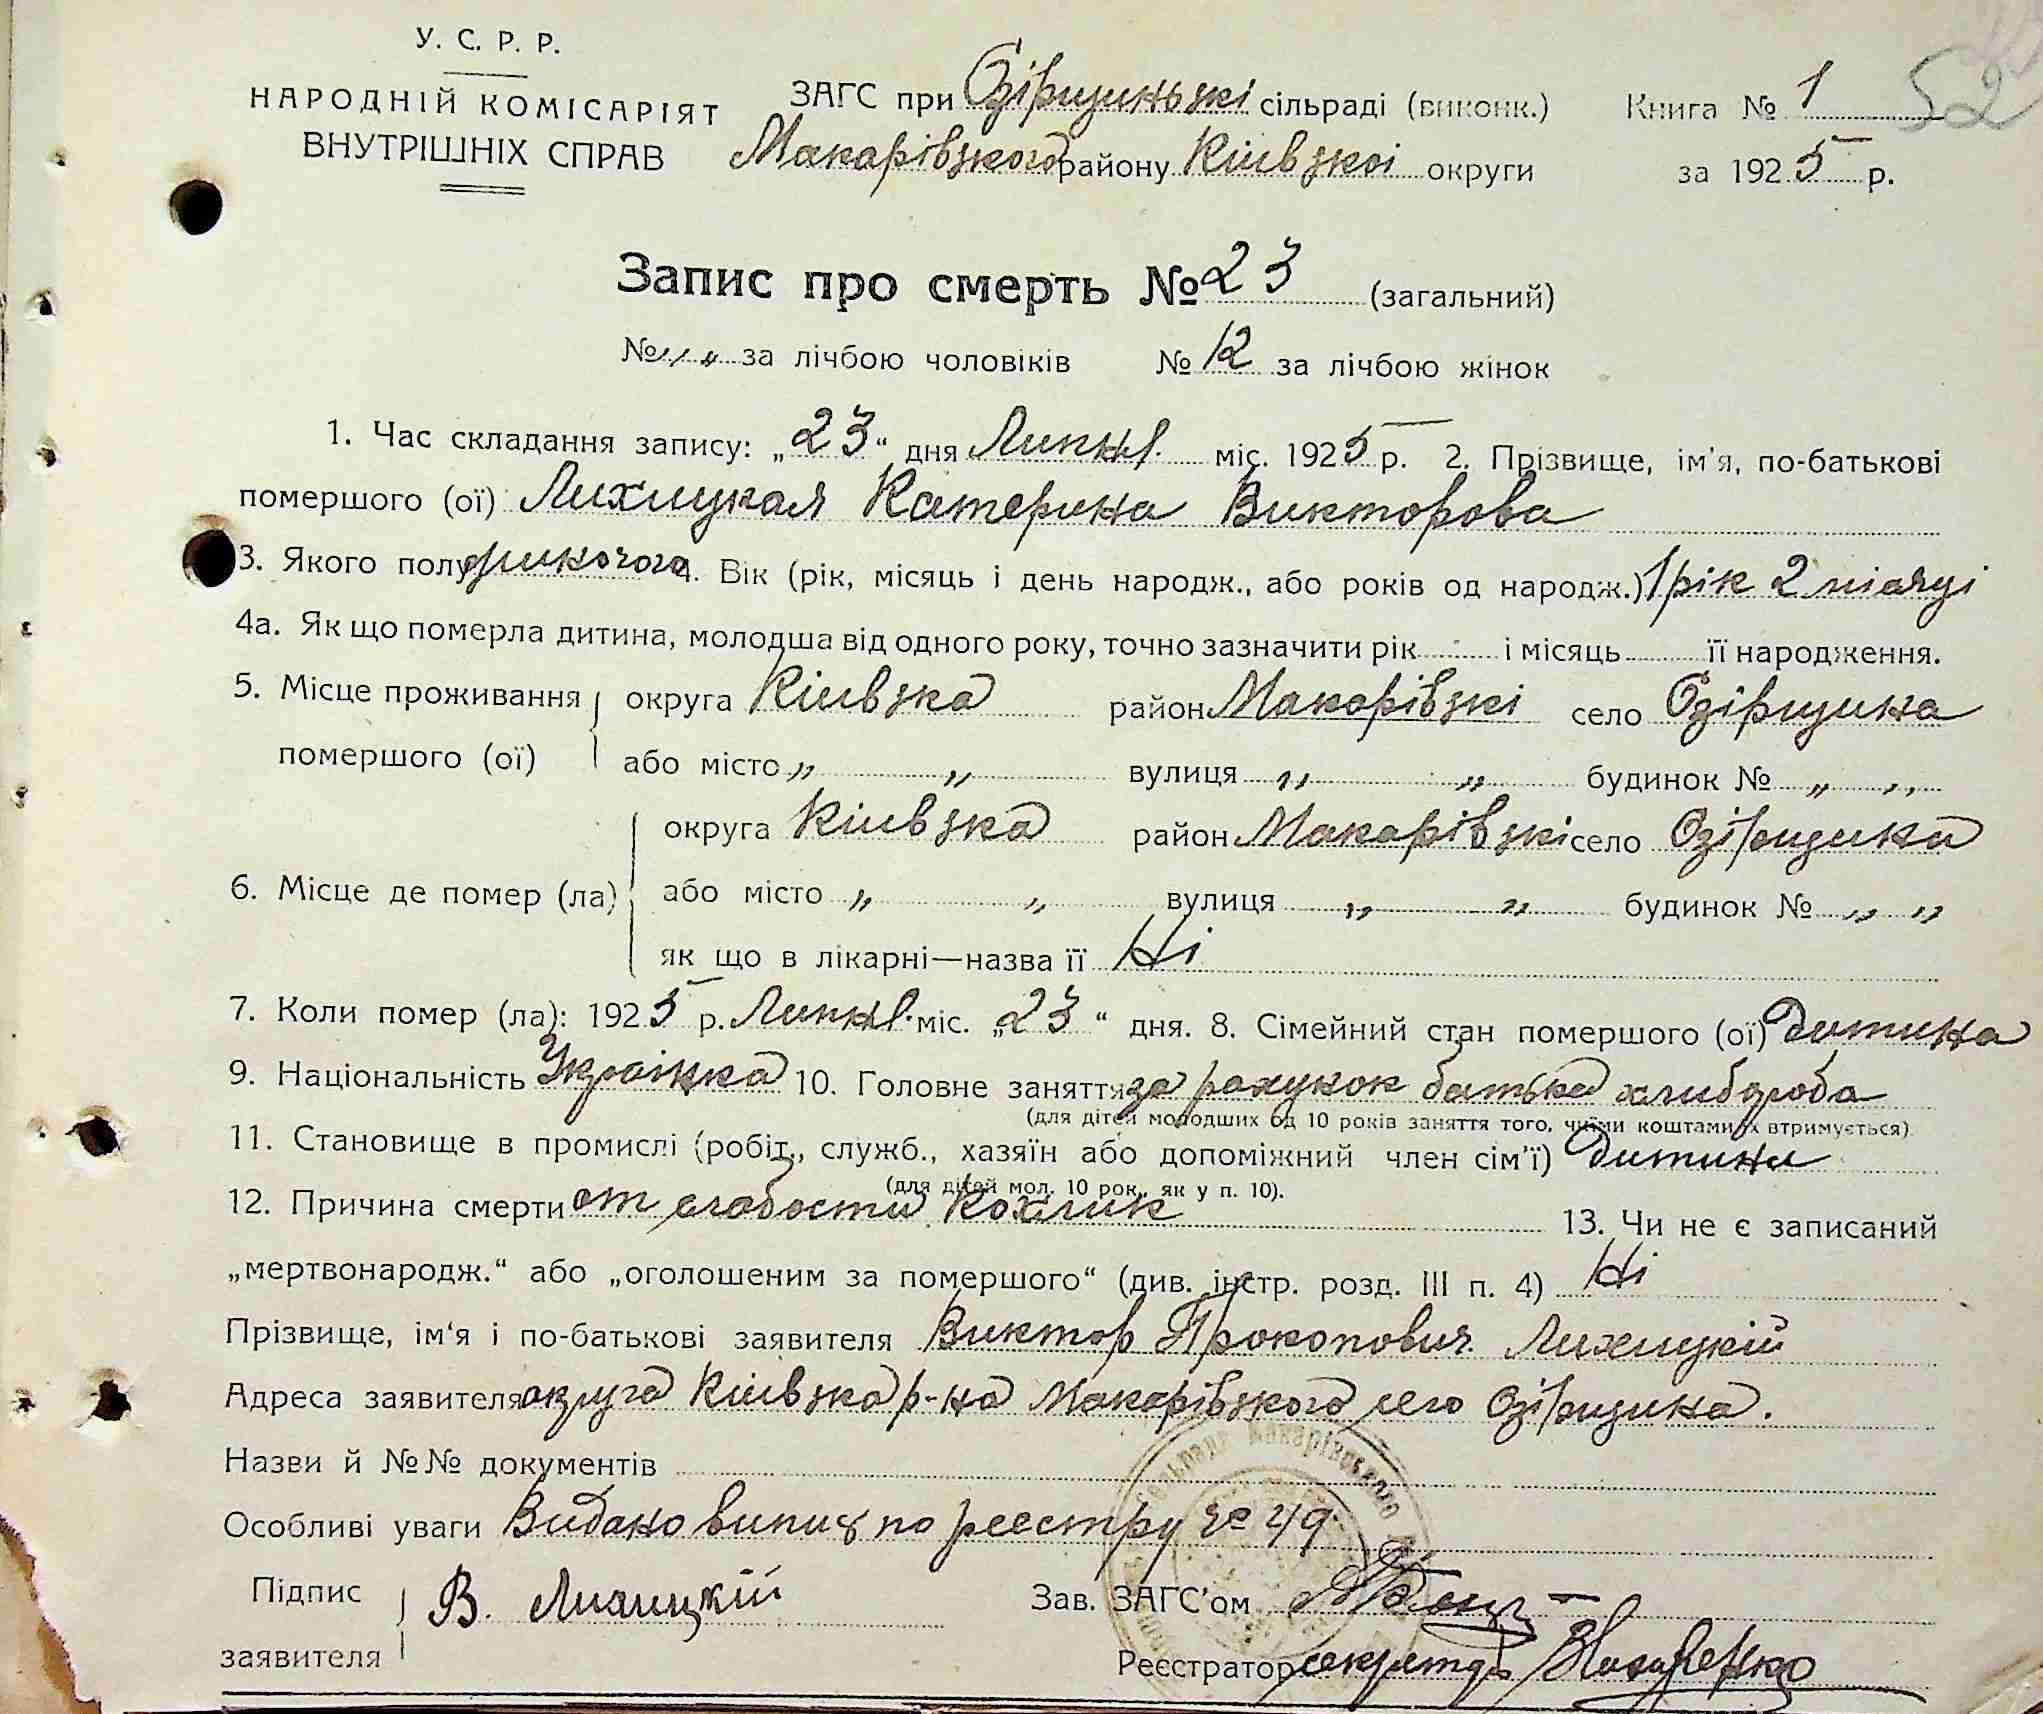 У. С. Р. Р.
НАРОДНІЙ КОМІСАРІЯТ
ВНУТРІШНІХ СПРАВ
ЗАГС при Озірщиньскі сільраді (виконк.)
Макарівского району Київскоі округи
Книга № 1
за 1925 р.
52
Запис про смерть № 23 (загальний)
№ „ „ за лічбою чоловіків № 12 за лічбою жінок
1. Час складання запису: „23“ дня Липня міс. 1925 р. 2. Прізвище, ім'я, по-батькові
помершого (ої) Лихицкая Катерина Викторова
3. Якого полу жиночого 4. Вік (рік, місяць і день народж., або років од народж.) 1 рік 2 місяці
4а. Як що померла дитина, молодша від одного року, точно зазначити рік і місяць її народження.
5. Місце проживання округа Київска район Макарівскі село Озірщина
помершого (ої) або місто „ „ вулиця „ „ будинок № „ „
округа Київска район Макарівскі село Озірщина
6. Місце де помер (ла) або місто „ „ вулиця „ „ будинок № „ „
як що в лікарні—назва її Ні
7. Коли помер (ла): 1925 р. Липня міс. „23“ дня. 8. Сімейний стан помершого (ої) Дитина
9. Національність Украінка 10. Головне заняття за рахунок батька хлибороба
(для дітей молодших од 10 років заняття того, чиїми коштами їх втримується)
11. Становище в промислі (робіт., служб., хазяїн або допоміжний член сім'ї) Дитина
(для дітей мол. 10 рок., як у п. 10).
12. Причина смерти от слабости Кохлик 13. Чи не є записаний
„мертвонародж.“ або „оголошеним за помершого“ (див. інстр. розд. III п. 4) Ні
Прізвище, ім'я і по-батькові заявителя Виктор Прокопович Лихицкій
Адреса заявителя округа Київска р-на Макарівского село Озірщина.
Назви й №№ документів
Особливі уваги Видано випис по реестру за 49.
Підпис
заявителя
В. Лихицкій
Зав. ЗАГС'ом
Реєстратор секретарь Назаренко